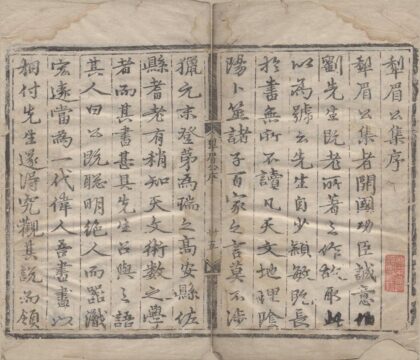 犁眉公集序
犁眉公集者開國功臣誠意伯
劉先生既老所著之作編
以為號云先生自少穎敏長
於書無所不讀凡天文地理陰
陽卜筮諸子百家之言莫不涉
獵元末登第為瑞之高安縣佐
縣耆老有稍知天文術數之學
者而其書甚具先生召與之語
其人曰公既聰明絶人而器識
宏遠當為一代偉人吾書盡以
相付先生遂得究觀其說而領